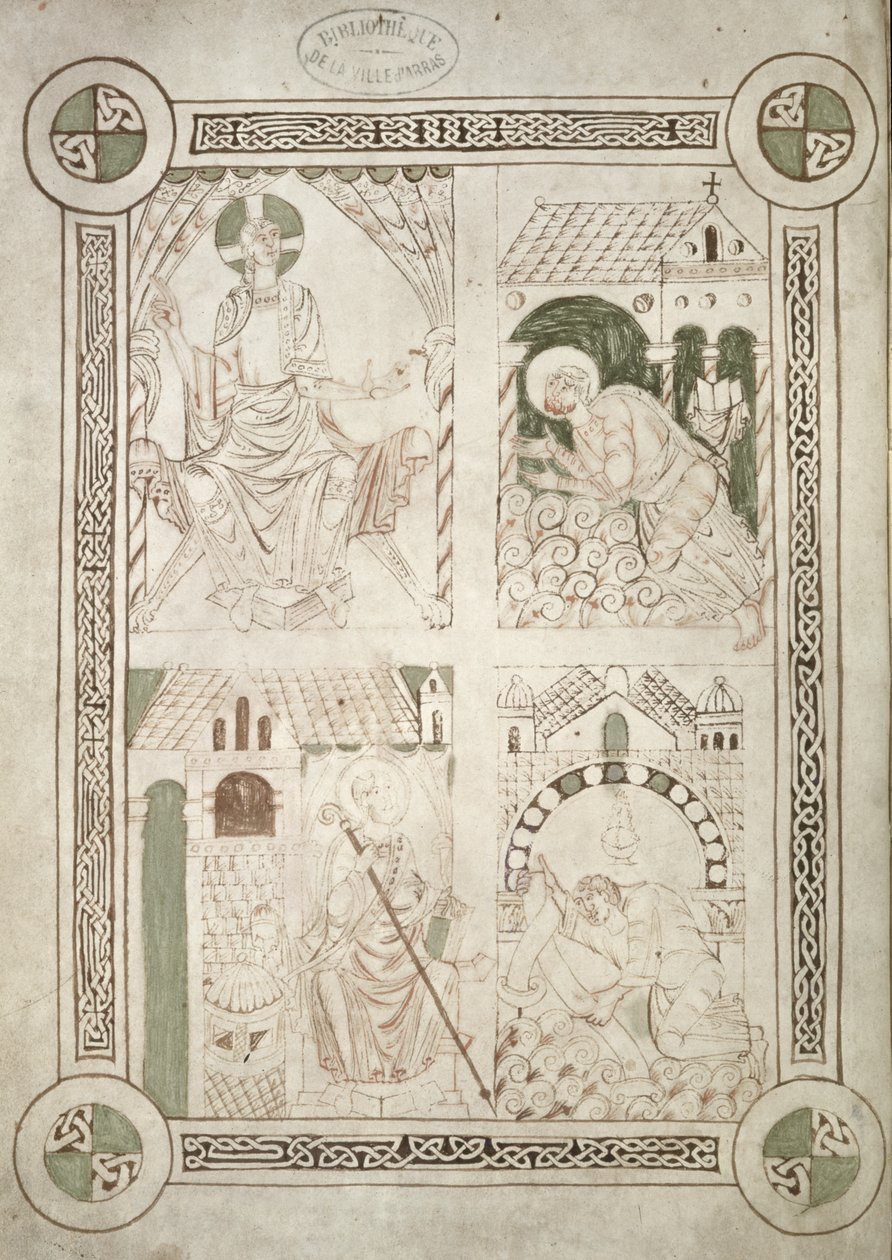 BIBLIOTHÈQUE
DE LA VILLE d'ARRAS